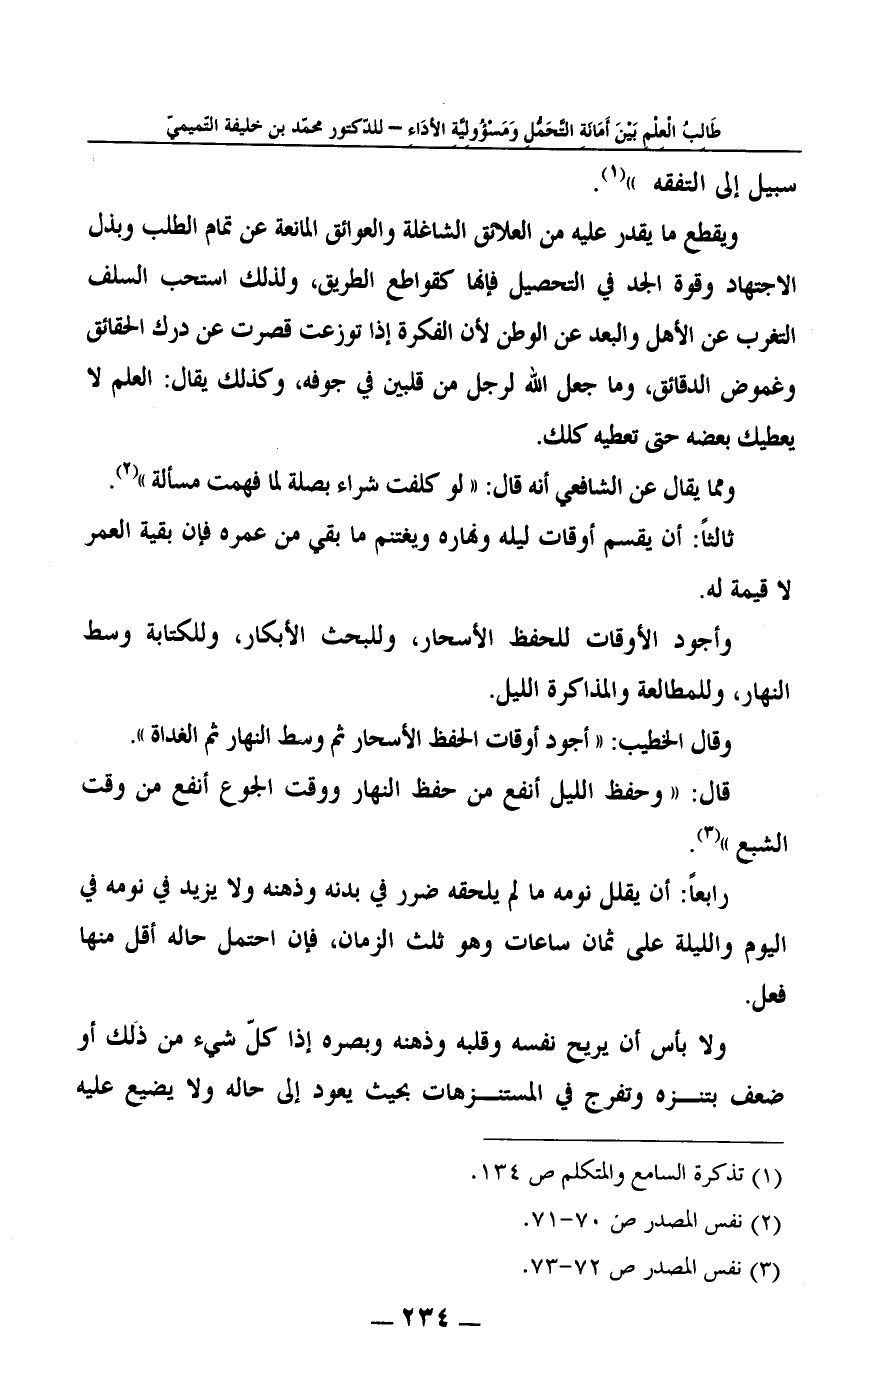 طَالِبُ الْعِلْمِ بَيْنَ أَمَانَةِ التَّحَمُّلِ وَمَسْؤُولِيَّةِ الأَدَاءِ – للدّكتور محمّد بن خليفة التّميميّ
سبيل إلى التفقه »(١).
ويقطع ما يقدر عليه من العلائق الشاغلة والعوائق المانعة عن تمام الطلب وبذل
الاجتهاد وقوة الجد في التحصيل فإنها كقواطع الطريق، ولذلك استحب السلف
التغرب عن الأهل والبعد عن الوطن لأن الفكرة إذا توزعت قصرت عن درك الحقائق
وغموض الدقائق، وما جعل الله لرجل من قلبين في جوفه، وكذلك يقال: العلم لا
يعطيك بعضه حتى تعطيه كلك.
ومما يقال عن الشافعي أنه قال: « لو كلفت شراء بصلة لما فهمت مسألة »(٢).
ثالثاً: أن يقسم أوقات ليله ونهاره ويغتنم ما بقي من عمره فإن بقية العمر
لا قيمة له.
وأجود الأوقات للحفظ الأسحار، وللبحث الأبكار، وللكتابة وسط
النهار، وللمطالعة والمذاكرة الليل.
وقال الخطيب: « أجود أوقات الحفظ الأسحار ثم وسط النهار ثم الغداة ».
قال: « وحفظ الليل أنفع من حفظ النهار ووقت الجوع أنفع من وقت
الشبع »(٣).
رابعاً: أن يقلل نومه ما لم يلحقه ضرر في بدنه وذهنه ولا يزيد في نومه في
اليوم والليلة على ثمان ساعات وهو ثلث الزمان، فإن احتمل حاله أقل منها
فعل.
ولا بأس أن يريح نفسه وقلبه وذهنه وبصره إذا كلّ شيء من ذلك أو
ضعف بتنـــزه وتفرج في المستنـــزهات بحيث يعود إلى حاله ولا يضيع عليه
(١) تذكرة السامع والمتكلم ص ١٣٤.
(٢) نفس المصدر ص ٧٠-٧١.
(٣) نفس المصدر ص ٧٢-٧٣.
– ٢٣٤ –